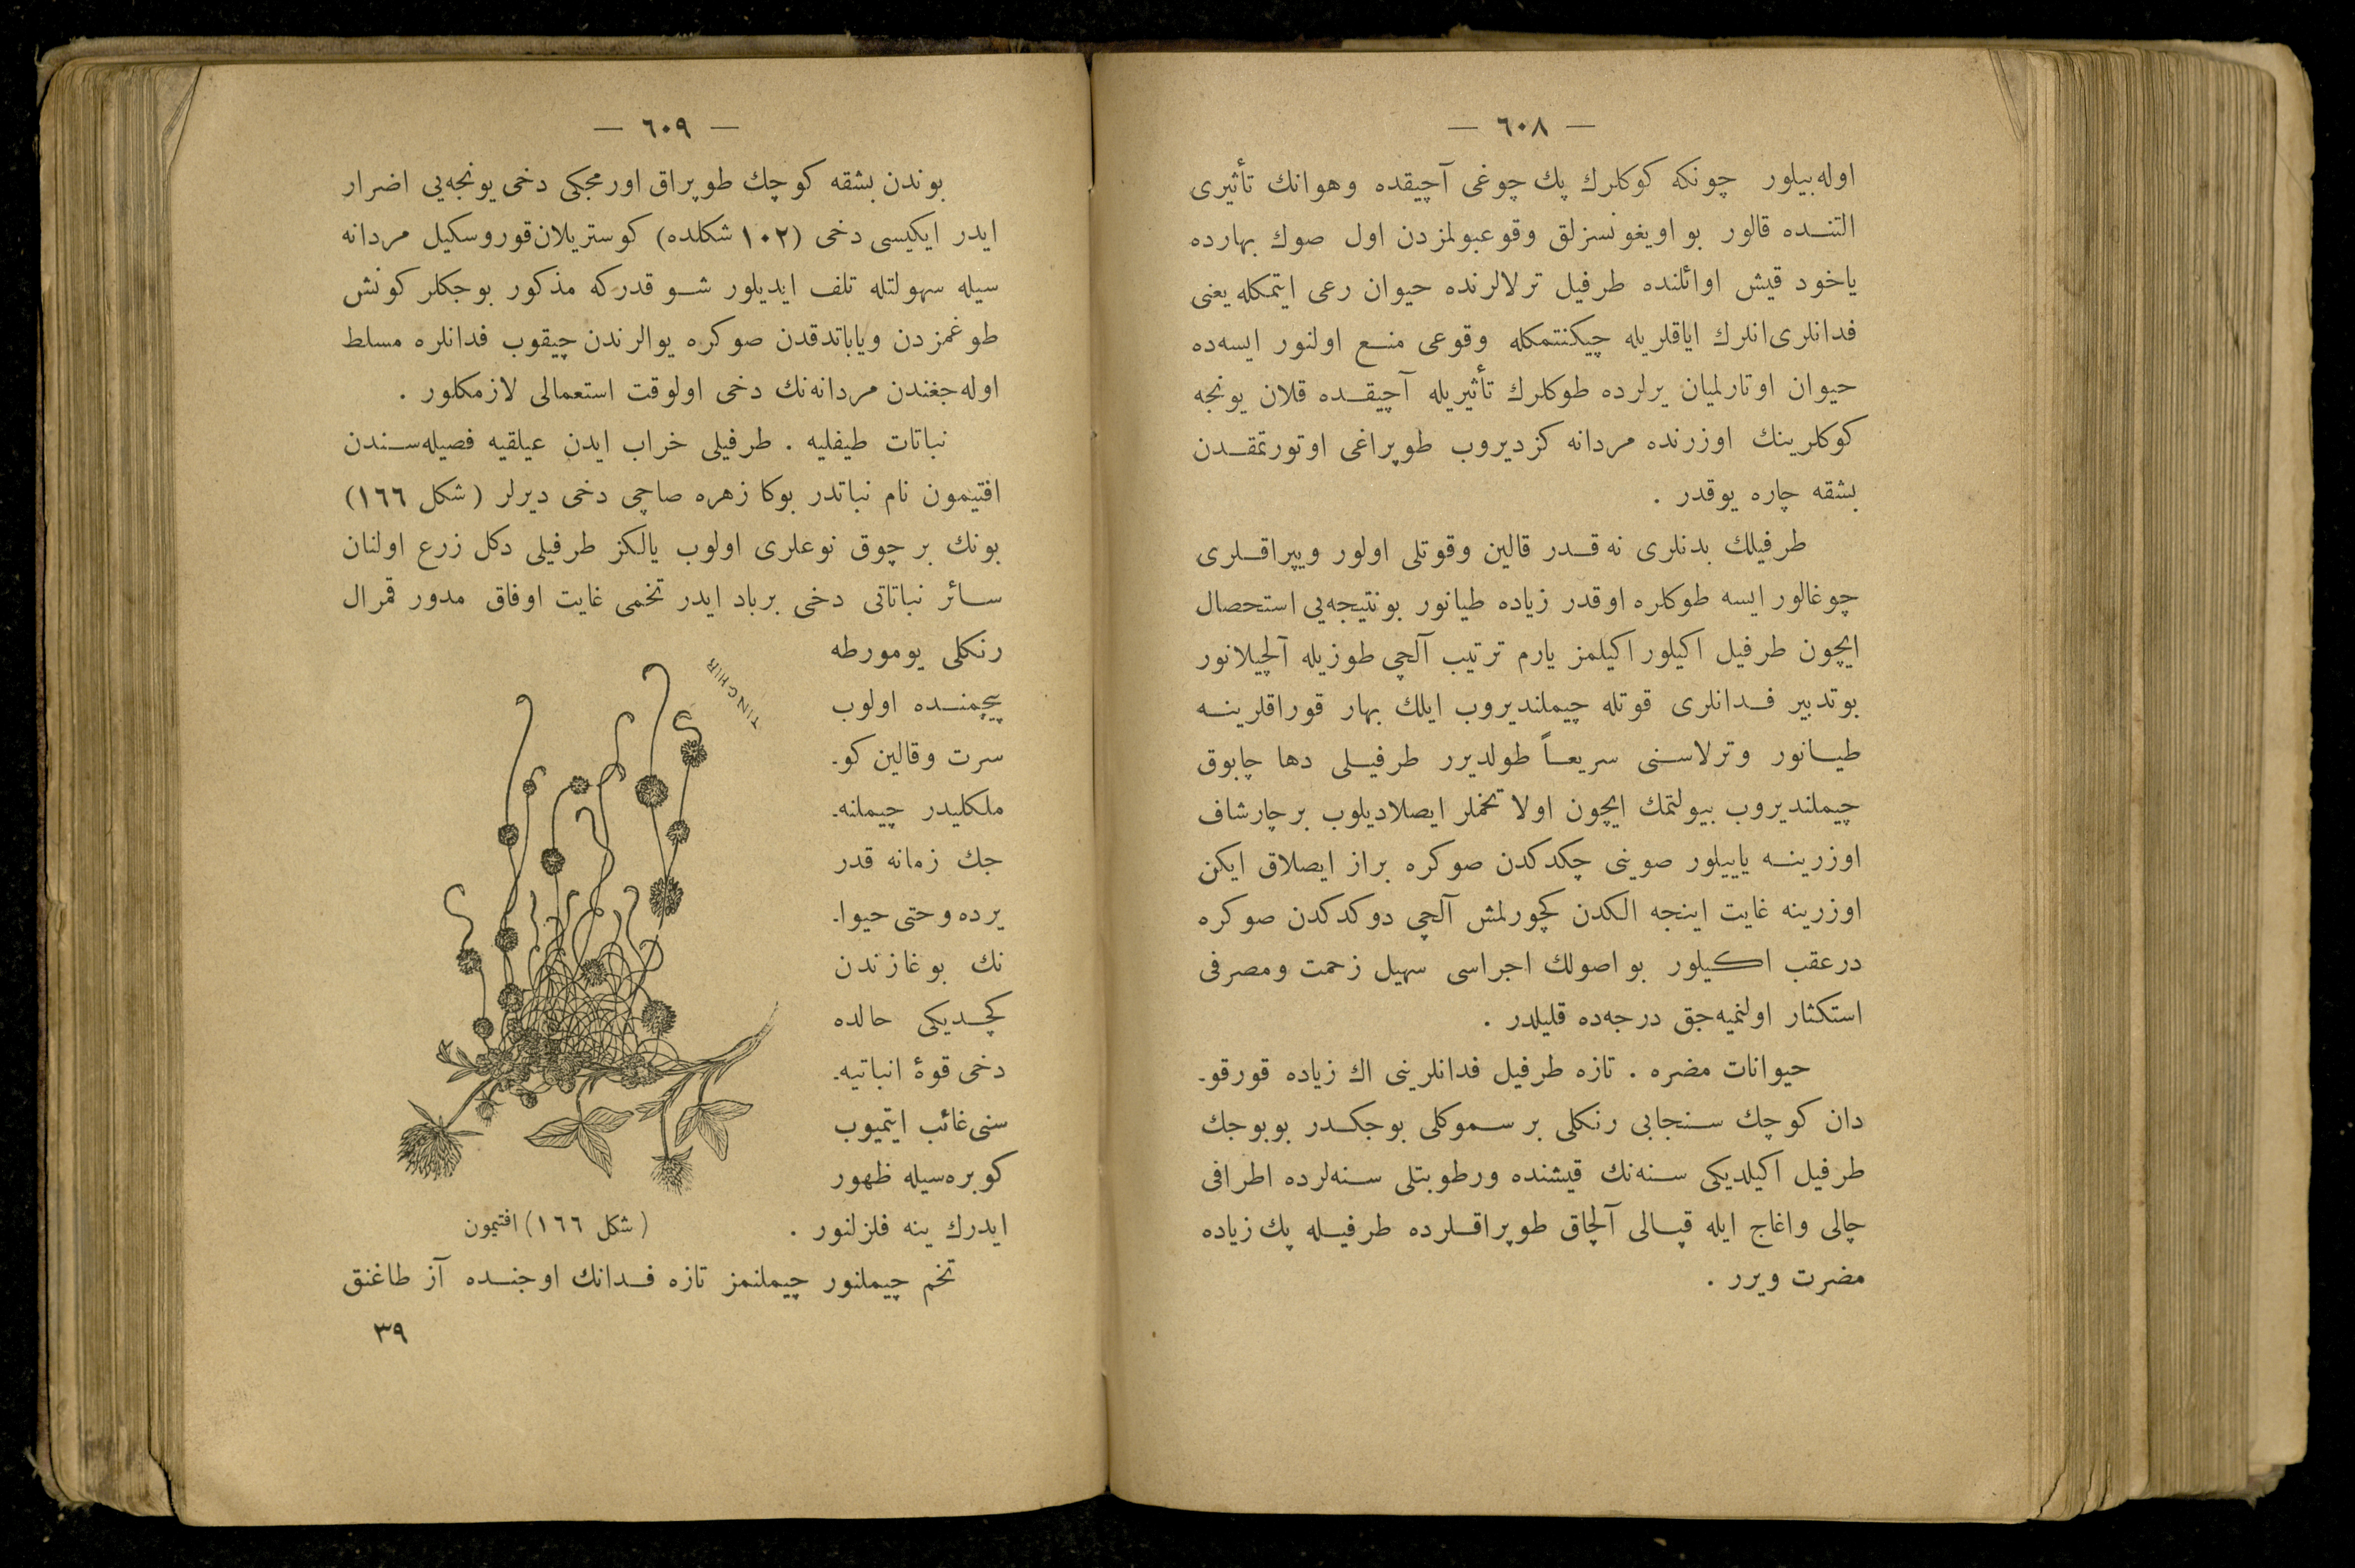 — ٦٠٨ —
اوله‌بیلور چونکه کوکلرك پك چوغی آچیقده وهوانك تأثیری
التنده قالور بو اویغونسزلق وقوعبولمزدن اول صوك بهارده
یاخود قیش اوائلنده طرفیل ترلالرنده حیوان رعی ایتمکله یعنی
فدانلری انلرك ایاقلریله چیکنتمکله وقوعی منع اولنور ایسه‌ده
حیوان اوتارلمیان یرلرده طوکلرك تأثیریله آچیقده قلان یونجه
کوکلرینك اوزرنده مردانه کزدیروب طوپراغی اوتورتمقدن
بشقه چاره یوقدر .
طرفیلك بدنلری نه قدر قالین وقوتلی اولور ویپراقلری
چوغالور ایسه طوکلره اوقدر زیاده طیانور بونتیجه‌یی استحصال
ایچون طرفیل اکیلور اکیلمز یارم ترتیب آلچی طوزیله آلچیلانور
بوتدبیر فدانلری قوتله چیملندیروب ایلك بهار قوراقلرینه
طیانور وترلاسنی سریعاً طولدیرر طرفیلی دها چابوق
چیملندیروب بیولتمك ایچون اولا تخملر ایصلادیلوب بر چارشاف
اوزرینه یاییلور صوینی چکدکدن صوکره براز ایصلاق ایکن
اوزرینه غایت اینجه الکدن کچورلمش آلچی دوکدکدن صوکره
درعقب اکیلور بو اصولك اجراسی سهیل زحمت ومصرفی
استکثار اولنمیه‌جق درجه‌ده قلیلدر .
حیوانات مضره . تازه طرفیل فدانلرینی اك زیاده قورقو-
دان کوچك سنجابی رنکلی بر سموکلی بوجکدر بوبوجك
طرفیل اکیلدیکی سنه‌نك قیشنده ورطوبتلی سنه‌لرده اطرافی
چالی واغاج ایله قپالی آلچاق طوپراقلرده طرفیله پك زیاده
مضرت ویرر .
— ٦٠٩ —
بوندن بشقه کوچك طوپراق اورمجکی دخی یونجه‌یی اضرار
ایدر ایکیسی دخی (١٠٢ شکلده) کوستریلان قوروسکیل مردانه
سیله سهولتله تلف ایدیلور شو قدرکه مذکور بوجکلر کونش
طوغمزدن ویاباتدقدن صوکره یوالرندن چیقوب فدانلره مسلط
اوله‌جغندن مردانه‌نك دخی اولوقت استعمالی لازمکلور .
نباتات طیفلیه . طرفیلی خراب ایدن عیلقیه فصیله‌سندن
افتیمون نام نباتدر بوکا زهره صاچی دخی دیرلر (شکل ١٦٦)
بونك بر چوق نوعلری اولوب یالکز طرفیلی دکل زرع اولنان
سائر نباتاتی دخی برباد ایدر تخمی غایت اوفاق مدور قمرال
رنکلی یومورطه
پیچمنده اولوب
سرت وقالین کو-
ملکلیدر چیملنه-
جك زمانه قدر
یرده وحتی حیوا-
نك بوغازندن
کچدیکی حالده
دخی قوۀ انباتیه-
سنی غائب ایتمیوب
کوبره‌سیله ظهور
ایدرك ینه فلزلنور .
TINGHIR
(شکل ١٦٦) افتیمون
تخم چیملنور چیملنمز تازه فدانك اوجنده آز طاغنق
٣٩